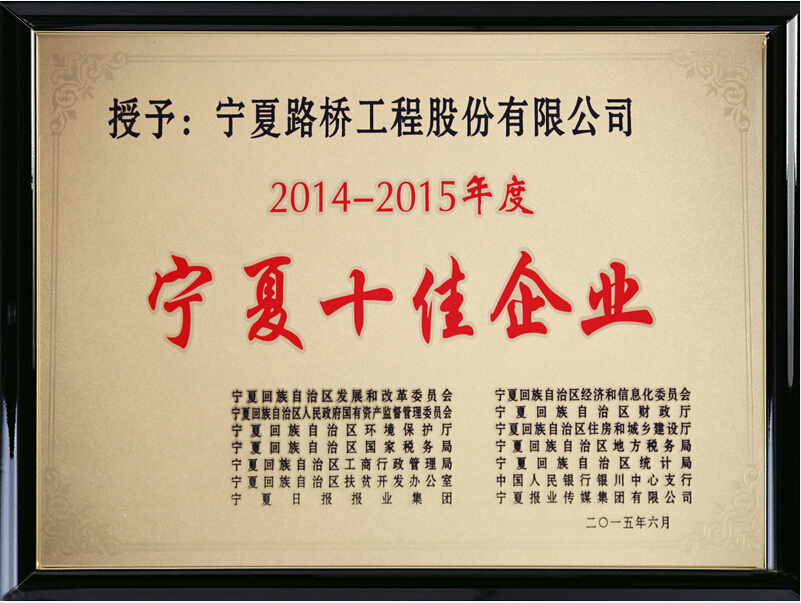 授予：宁夏路桥工程股份有限公司
2014-2015年度
宁夏十佳企业
宁夏回族自治区发展和改革委员会
宁夏回族自治区人民政府国有资产监督管理委员会
宁夏回族自治区环境保护厅
宁夏回族自治区国家税务局
宁夏回族自治区工商行政管理局
宁夏回族自治区扶贫开发办公室
宁夏日报报业集团
宁夏回族自治区经济和信息化委员会
宁夏回族自治区财政厅
宁夏回族自治区住房和城乡建设厅
宁夏回族自治区地方税务局
宁夏回族自治区统计局
中国人民银行银川中心支行
宁夏报业传媒集团有限公司
二〇一五年六月